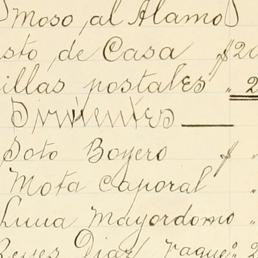 moso al Alamo
sto de Casa $20
illas postales " 2
Sirvientes
Soto Boyero $ "
Mota Caporal "
Luna Mayordomo "
Reyes Diaz Vaquo " 2